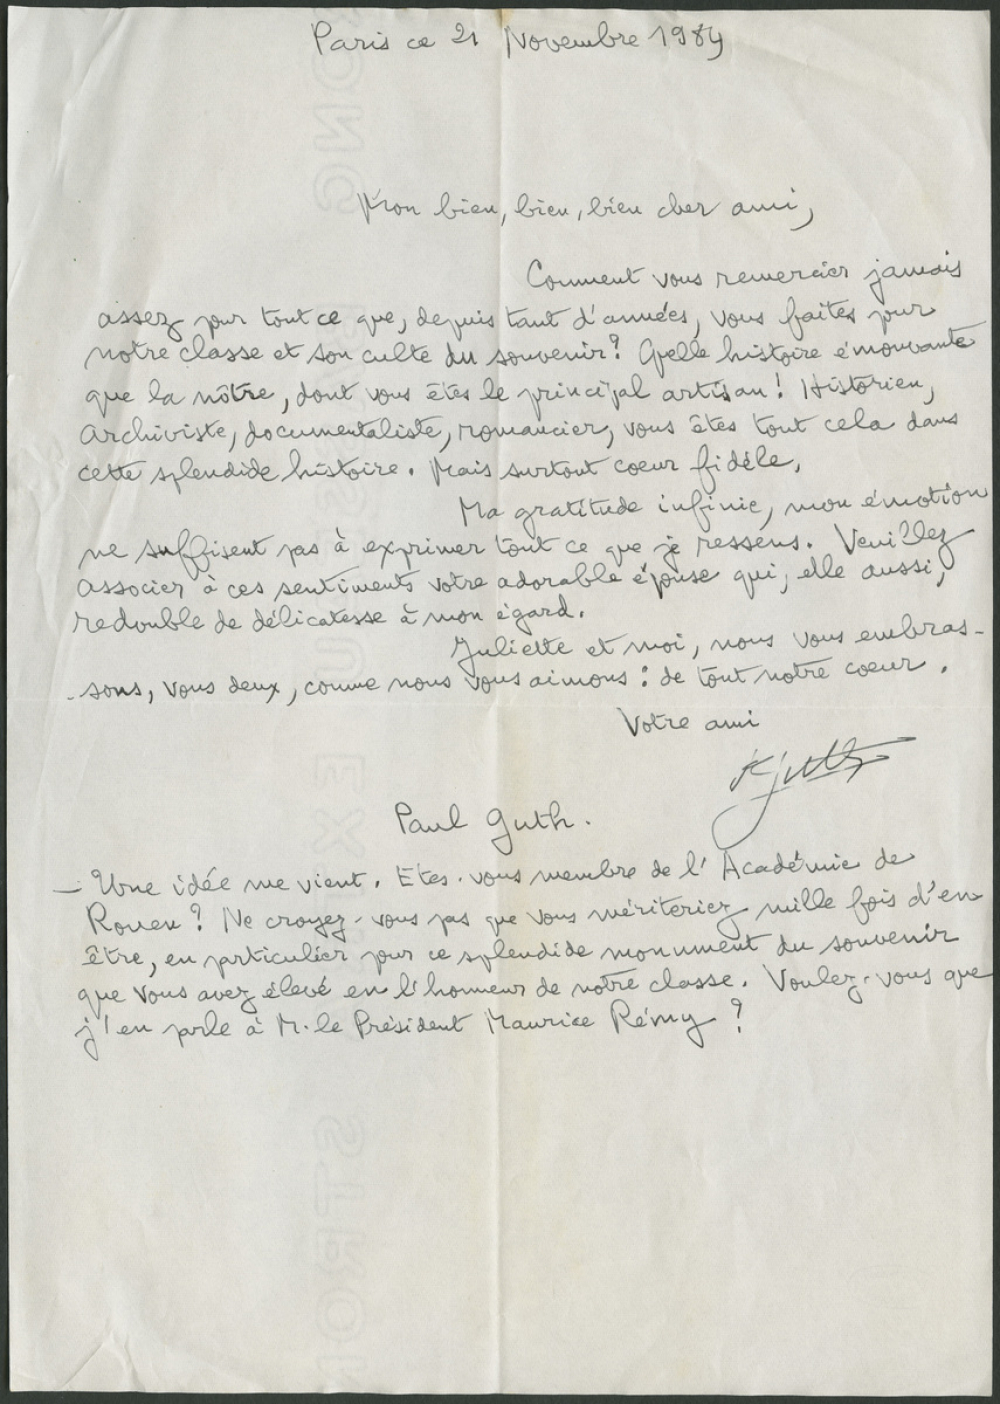 Paris ce 21 Novembre 1984
Mon bien, bien, bien cher ami,
Comment vous remercier jamais
assez pour tout ce que, depuis tant d'années, vous faites pour
notre classe et son culte du souvenir? Quelle histoire émouvante
que la nôtre, dont vous êtes le principal artisan! Historien,
Archiviste, documentaliste, romancier, vous êtes tout cela dans
cette splendide histoire. Mais surtout coeur fidèle.
Ma gratitude infinie, mon émotion
ne suffisent pas à exprimer tout ce que je ressens. Veuillez
associer à ces sentiments votre adorable épouse qui, elle aussi,
redouble de délicatesse à mon égard.
Juliette et moi, nous vous embras-
-sons, vous deux, comme nous vous aimons: de tout notre coeur.
Votre ami
Paul Guth.
— Une idée me vient. Etes-vous membre de l'Académie de
Rouen? Ne croyez-vous pas que vous mériteriez mille fois d'en
être, en particulier pour ce splendide monument du souvenir
que vous avez élevé en l'honneur de notre classe. Voulez-vous que
j'en parle à M. le Président Maurice Rémy?